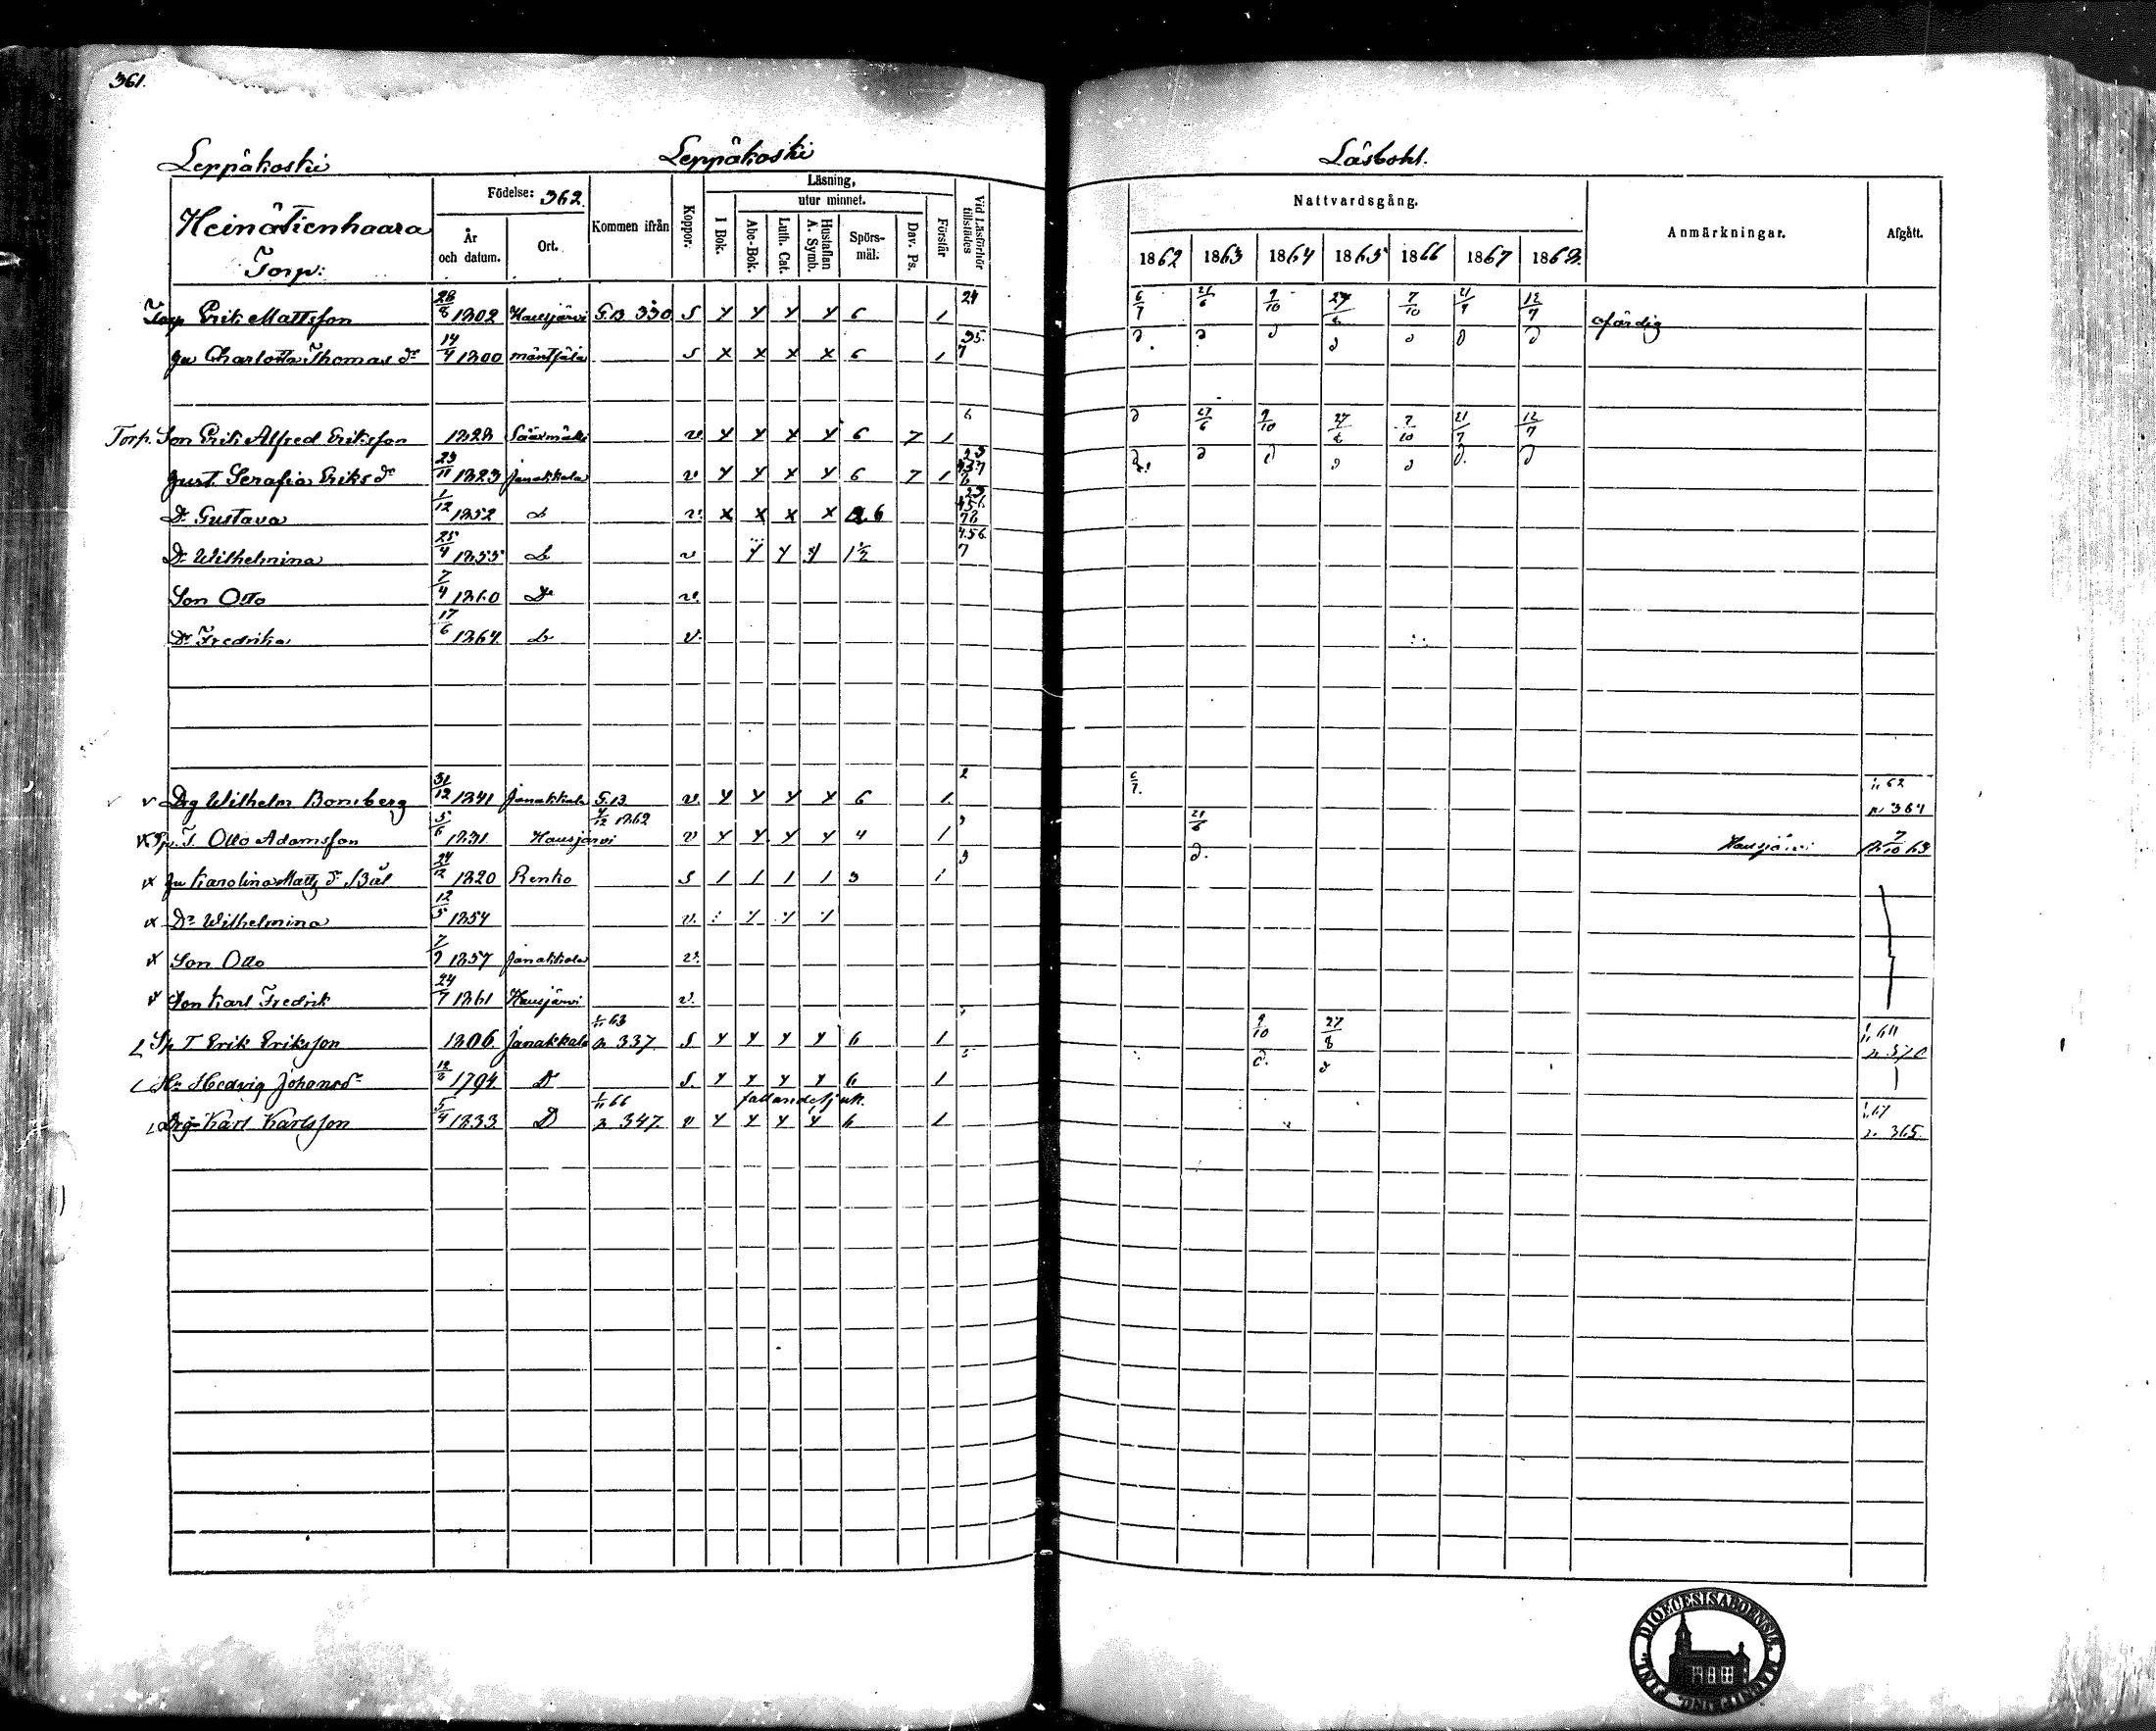 361.
Leppäkoski Leppäkoski Läsbohl.
Heinätienhaara
Torp:
Födelse: 362.
År och datum.
Ort.
Kommen ifrån
Koppor.
Läsning,
I Bok.
utur minnet.
Abc-Bok.
Luth. Cat.
Hustaflan A. Symb.
Spörsmål.
Dav. Ps.
Förstår
Vid Läsförhör tillstädes
Nattvardsgång.
1862 1863 1864 1865 1866 1867 1868.
Anmärkningar.
Afgått.
Torp Erik Mattsson 28/8 1802 Hausjärvi G.B. 330 s y y y y 6 1 24 6/7 21/6 9/10 7/10 12/7 ofärdig
hu Charlotta Thomas dr 14/4 1800 Mäntsälä s x x x x 6 1 35. 7
Torp. Son Erik Alfred Eriksson 1828 Sääxmäki v. y y y y 6 7 1 6 9/10 7/10 21/7 12/7
hust. Serafia Eriks dr 23/11 1823 Janakkala v y y y y 6 7 1
Dr Gustava 1/12 1852 v. x x x x 6
Dr Wilhelmina 25/4 1855 v y y y 1½ 456 7
Son Otto 7/4 1860 Do v.
Dr Fredrika 17/6 1864 v.
v Drg Wilhelm Bomberg 31/12 1841 Janakkala G.B. v. y y y y 6 1. 2 6/7. 62 p. 364
Otto Adamsson 5/6 1831 Hausjärvi 1862 v y y y y 4 1 21/6 Hausjärvi 7/10 63
hu Karolina Matts dr Bäl 1820 Renko s 1 1 1 1 3 1
Dr Wilhelmina 12/5 1854 v.
Son Otto 1857 Janakkala v.
Son Karl Fredrik 24/7 1861 Hausjärvi v.
Erik Eriksson 1806. Janakkala 63 p. 337. s y y y y 6 1 9/10 27/8
Hu Hedvig Johans dr 1794 D s. y y y y 6 1
fallandesjuk.
Drg Karl Karlsson 5/4 1833 D 66 p. 347 v y y y y 6 1 67 p. 365.
DIOECESIS ABOENSIS